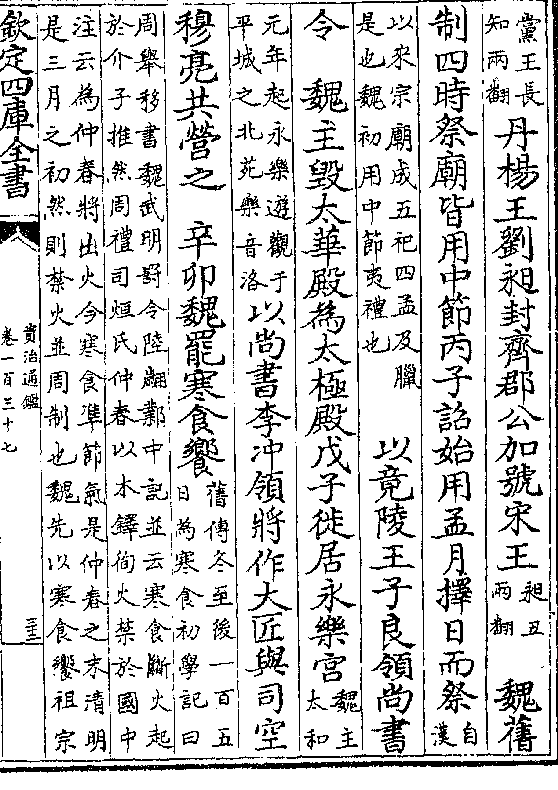 黨王長知兩翻丹楊王劉昶封齊郡公加號宋王昶丑兩翻　魏舊
制四時祭廟皆用中節丙子詔始用孟月擇日而祭自漢
以來宗廟成五祀四孟及臘是也魏初用中節夷禮也　以竟陵王子良領尚書
令　魏主毀太華殿為太極殿戊子徙居永樂宮魏主太和
元年起永樂遊觀于平城之北苑樂音洛以尚書李冲領將作大匠與司空
穆亮共營之　辛卯魏罷寒食饗舊傳冬至後一百五日為寒食初學記曰
周舉移書魏武明罸令陸翽鄴中記並云寒食斷火起
於介子推然周禮司烜氏仲春以木鐸徇火禁於國中
注云為仲春將出火今寒食準節氣是仲春之末清明
是三月之初然則禁火並周制也魏先以寒食饗祖宗
欽定四庫全書
資治通鑑
卷一百三十七